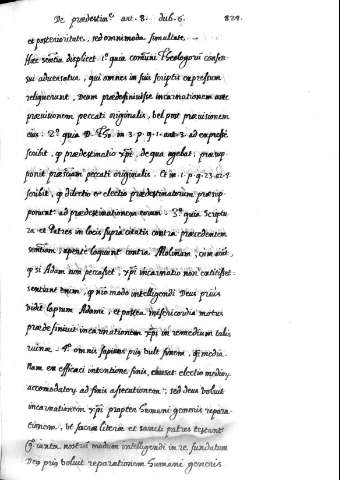 De prædestin.e art. 8. dub. 6. 828.
et posterioritate, sed omnimoda simultate.
Hæc sentia displicet 1.o quia comuni Theologorũ consen-
sui adversatur, qui omnes in suis scriptis expressum
reliquerunt, Deum prædefinivisse incarnationem ante
prævisionem peccati originalis, vel post prævisionem
eius. 2.o quia D. Tho. in 3. p. q. 1. ant. 3. ad expresse
scribit, q prædestinatio xpi, de qua agebat, præsup-
ponit præsciam peccati originalis. Et in 1. p. q. 23. a. 4
scribit, q dilectio et electio prædestinatorum præsup-
ponunt ad prædestinationem eorum. 3.o quia Scriptu-
ra et Patres in locis supra citatis contra præcedentem
sentiam, aperte loquunt contra Molinam, cum aiũt,
q si Adam non peccasset, xpi incarnatio non extitisset:
sentiunt enim, q nro modo intelligendi Deus prius
vidit lapsum Adami, et postea misericordia motus
prædefinivit incarnationem xpi in remedium talis
ruinæ. 4.o omnis sapiens prius vult finem, q media.
Nam ex efficaci intentione finis, elicitet electio mediorũ
accomodatorũ ad finis assecutionem; sed deus voluit
incarnationem xpi propter humani generis repara-
tionem, ut sacræ literæ et sancti patres testant
q iuxta nostrũ modum intelligendi in re fundatum
Deus prius voluit reparationem humani generis